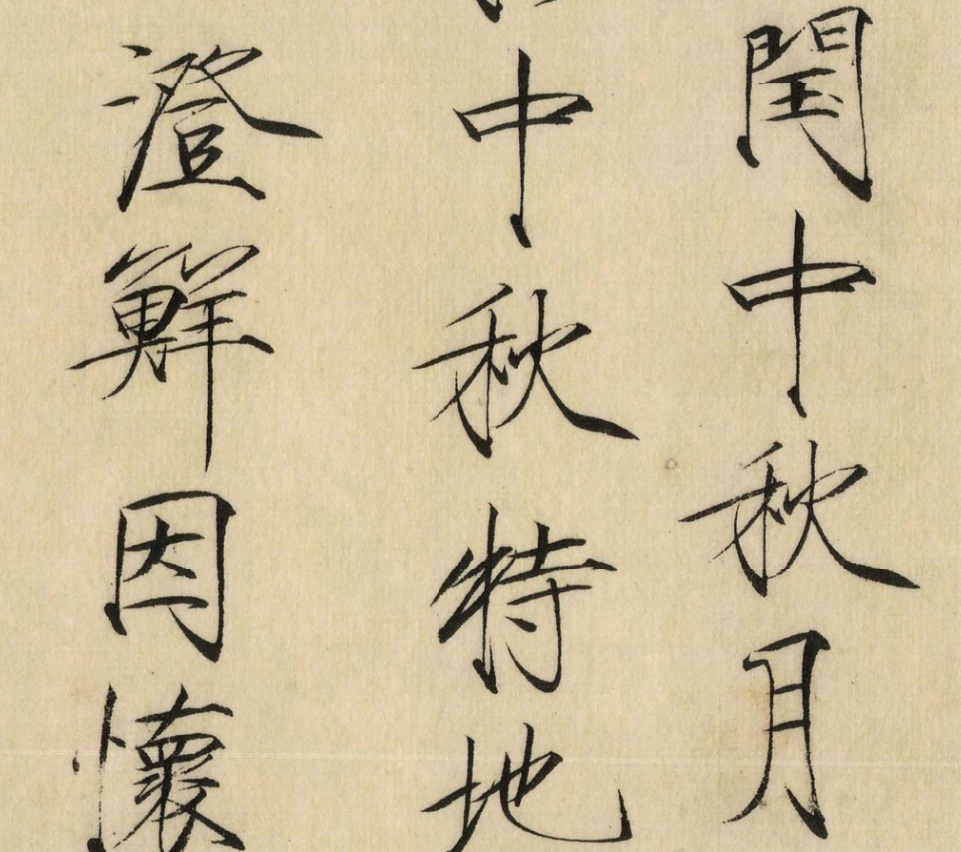 閏中秋月
中秋特地
澄鮮因懷